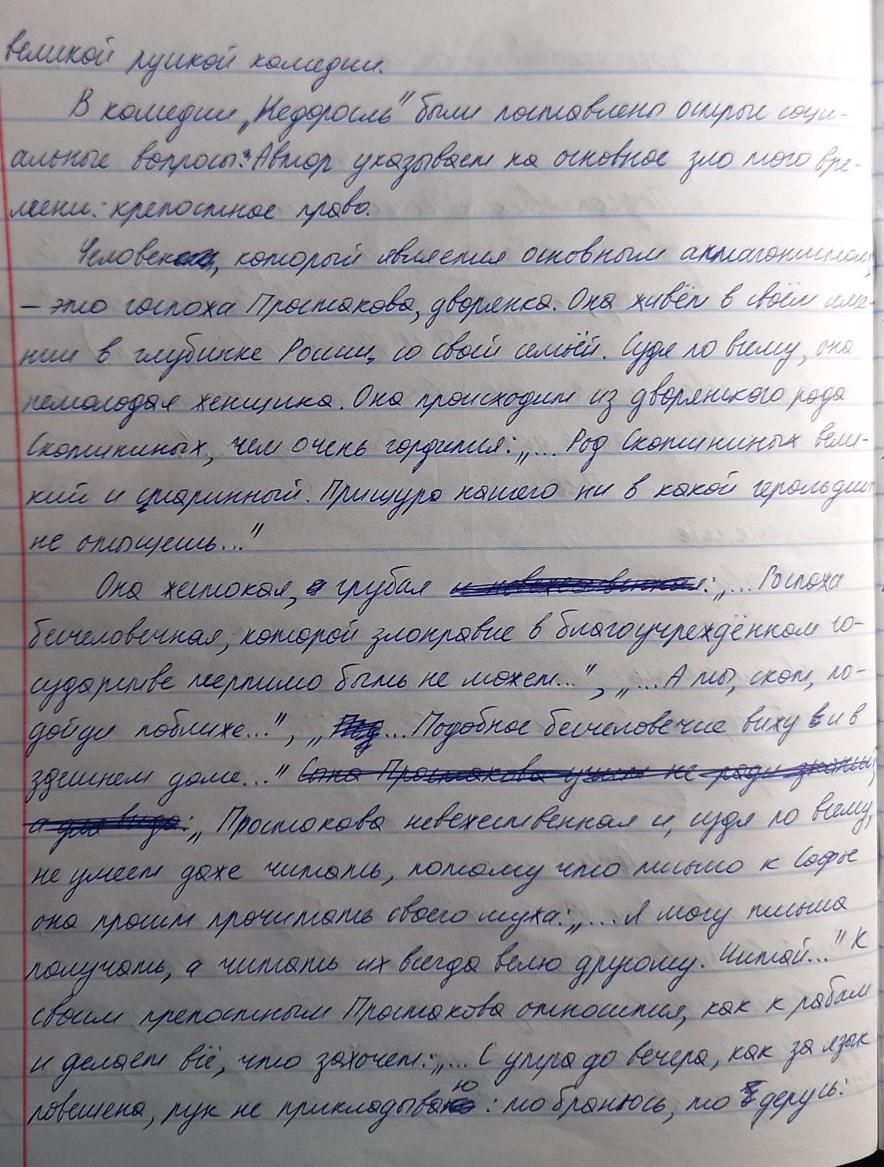 великой руской комедии.
В комедии „Недоросль" были поставлены острые соци-
альные вопросы: Автор указывает на основное зло того вре-
мени: крепостное право.
Человек, который является основным антагонистом,
– это госпожа Простакова, дворянка. Она живём в своём име-
нии в глубинке России, со своей семьёй. Судя по всему, она
немолодая женщина. Она происходит из дворянского рода
Скотининых, чем очень гордится: „... Род Скотининых вели-
кий и старинный. Пращура нашего ни в какой герольдии
не отыщешь..."
Она жестокая, грубая : „... Госпожа
бесчеловечная, которой злонравие в благоучреждённом го-
сударстве терпимо быть не может...", „... А ты, скот, по-
дойди поближе...", „... Подобное бесчеловечие вижу и в
здешнем доме..." Сама Простакова учит не ради знаний,
а для вида: „ Простакова невежественная и, судя по всему,
не умеет даже читать, потому что письмо к Софье
она просит прочитать своего мужа: „... Я могу письма
получать, а читать их всегда велю другому. Читай..." К
своим крепостным Простакова относится, как к рабам
и делает всё, что захочет: „... С утра до вечера, как за язык
повешена, рук не прикладываю: то бранюсь, то дерусь: